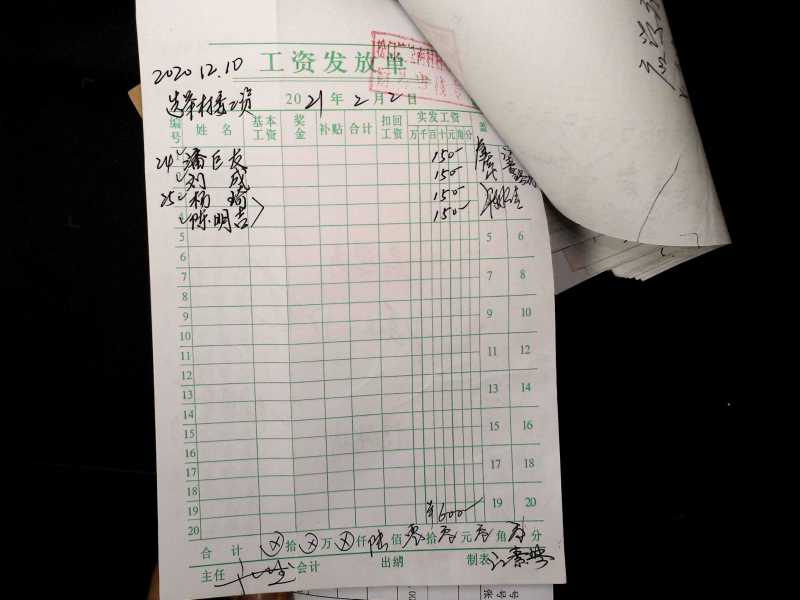 工资发放单
2020.12.10
选举村委工资
2021年2月2日
编号 姓名 基本工资 奖金 补贴 合计 扣回工资 实发工资 盖
万千百十元角分
24 潘巨友 150-
刘成 150-
25 杨琦 150-
4 陈明吉 150-
5 5 6
6
7 7 8
8
9 9 10
10
11 11 12
12
13 13 14
14
15 15 16
16
17 17 18
18
19 ¥600- 19 20
20
合计 ⊗拾⊗万⊗仟陆佰零拾零元零角零分
主任 会计 出纳 制表